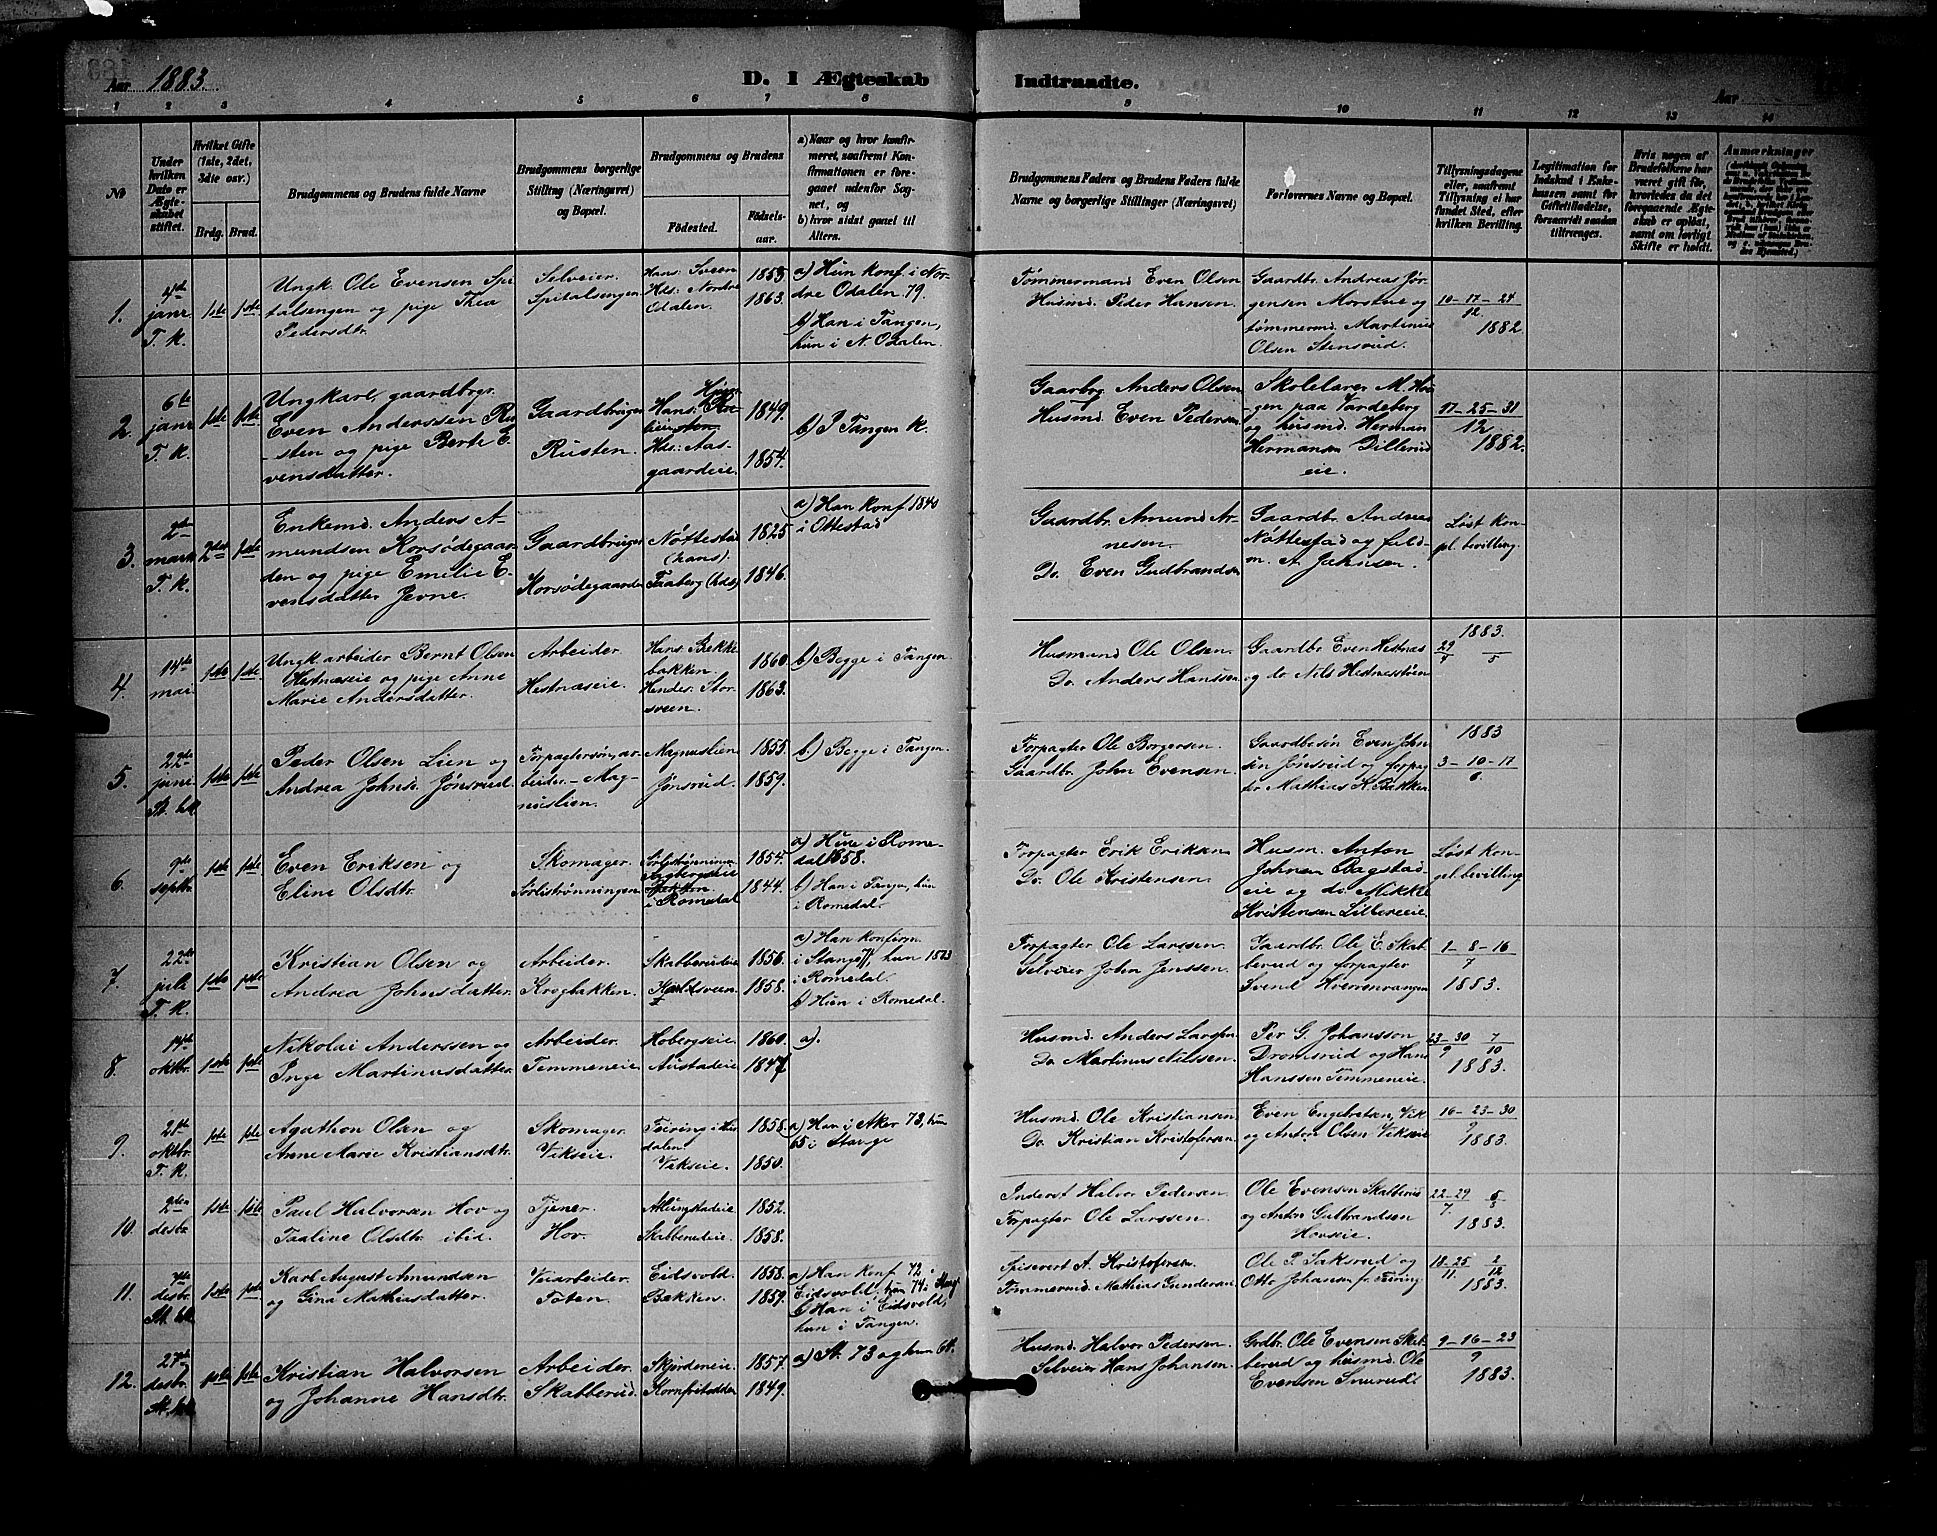 Aar 1883.
D. I Ægteskab Indtraadte.
Aar
1 2 3 4 5 6 7 8 9 10 11 12 13 14
No
Under hvilken Dato er Ægteskabet stiftet.
Hvilket Gifte (1ste, 2det, 3die osv.)
Brdg. Brud.
Brudgommens og Brudens fulde Navne
Brudgommens borgerlige Stilling (Næringsvei) og Bopæl.
Brudgommens og Brudens
Fødested.
Fødselsaar.
a) Naar og hvor konfirmeret, saafremt Konfirmationen er foregaaet udenfor Sognet, og
b) hvor sidst gaaet til Alters.
Brudgommens Faders og Brudens Faders fulde Navne og borgerlige Stillinger (Næringsvei)
Forlovernes Navne og Bopæl.
Tillysningsdagene eller, saafremt Tillysning ei har fundet Sted, efter hvilken Bevilling.
Legitimation for Indskud i Enkekassen samt for Giftetilladelse, forsaavidt saadan tiltrænges.
Hvis nogen af Brudefolkene har været gift før, hvorledes da det foregaaende Ægteskab er opløst, samt om lovligt Skifte er holdt.
Anmærkninger
1. 4de janr T. K. 1ste 1ste
Ungk. Ole Evensen Spitalsengen og pige Thea Pedersdtr.
Selveier. Spitalsengen
Hans: Sveen Hds: Nordre Odalen
1853 1863.
a) Hun konf. i Nordre Odalen 79.
b) Han i Tangen, hun i N. Odalen.
Tømmermand Even Olsen
Husmd. Peder Hansen
Gaardbr. Andreas Jørgensen Morstue og tømmermd. Martinus Olsen Stensrud.
10-17-24 12 1882.
2. 6te janr T. K. 1ste 1ste
Ungkarl, gaardbrgr. Even Anderssen Rusten og pige Berte Evensdatter.
Gaardbruger Rusten.
Hans: Hds: Aasgaardeie
1849. 1854.
b) I Tangen K.
Gaarbrg Anders Olsen
Husmd. Even Pedersen
Skolelærer M. Haugen paa Vardeberg og husmd. Herman Hermansen Dillerudeie.
17-25-31 12 1882.
3. 2den mars T. K. 2det 1ste
Enkemd. Anders Amundsen Korsødegaarden og pige Emilie Evensdatter Jevne.
Gaardbruger Korsødegaarden
Nøttestad (hans) Faaberg (hds)
1825 1846.
a) Han konf 1840 i Ottestad
Gaardbr. Amund Arnesen.
Do. Even Gudbrandsen
Gaardbr. Andreas Nøttestad og fuldm. A. Johnsen.
Løst Kongl. bevilling.
4. 14de mai 1ste 1ste
Ungk. arbeider Bernt Olsen Hestnæseie og pige Anne Marie Andersdatter.
Arbeider Hestnæseie.
Hans: Bekkebakken. Hendes: Storsveen.
1860. 1863.
b) Begge i Tangen.
Husmand Ole Olsen.
Do. Anders Hanssen
Gaardbr. Even Hestnæs og do Nils Hestnesstrøen
1883. 29 4 5
5. 22de juni St. hk. 1ste 1ste
Peder Olsen Lien og Andrea Johnsd. Jønsrud.
Forpagtersøn, arbeider - Magnuslien.
Magnuslien Jønsrud.
1855. 1859.
b) Begge i Tangen.
Forpagter Ole Borgersen.
Gaardbr. John Evensen.
Gaardbesøn Even Johnsen Jønsrud og forpagter Mathias K. Bakken
1883 3-10-17 6.
6. 9de septbr. 1ste 1ste
Even Eriksen og Eline Olsdtr.
Skomager. Sørlistrønningen
i Romedal
1854. 1844.
a) Hun i Romedal 1858.
b) Han i Tangen, hun i Romedal.
Forpagter Erik Eriksen
Do. Ole Kristensen.
Husm. Anton Johnsen Bagstadeie og do. Mikkel Kristensen Lillereeie.
Løst Kongel. bevilling
7. 22de juli T. K. 1ste 1ste
Kristian Olsen og Andrea Johnsdatter.
Arbeider. Krogbakken.
Skabberudeie Kjeldsveen.
1856. 1858.
a) Han konfirm. i Stange 71, hun 1873 i Romedal.
b) Hun i Romedal.
Forpagter Ole Larssen.
Selveier John Jenssen.
Gaardbr. Ole E. Skabberud og forpagter Svend Hverrenvangen
1-8-16 7 1883.
8. 14de oktbr. 1ste 1ste
Nikolai Anderssen og Inge Martinusdatter.
Arbeider. Temmeneie.
Hobergseie Austadeie
1860. 1847
a).
Husmd. Anders Larssen
Do. Martinus Nilssen.
Per G. Johansson Dromsrud og Hans Hanssen Temmeneie.
23-30 9 7 10 1883.
9. 21de oktbr. T. K. 1ste 1ste
Agathon Olsen og Anne Marie Kristiansdtr.
Skomager. Vikseie.
Feiring i Hurdalen. Vikseie.
1858. 1850.
a) Han i Aker 73, hun 65 i Stange
Husmd. Ole Kristiansen.
Do. Kristian Kristofersen.
Even Engebretsen, Vik og Anton Olsen Vikseie
16-23-30 9 1883.
10. 2den desbr 1ste 1ste
Paul Halvorsen Hov og Pauline Olsdtr. ibid.
Tjener. Hov.
Atlungstadeie Skabberudeie.
1852. 1858.
Inderst Halvor Pedersen.
Forpagter Ole Larssen.
Ole Evensen Skabberud og Anton Gulbrandsen Hovseie.
22-29 7. 5 8 1883.
11. 7de desbr. St. hk 1ste 1ste
Karl August Amundsen og Gina Mathiasdatter.
Veiarbeider. Toten.
Eidsvold. Bakken.
1858. 1859.
a) Han konf. 72 i Eidsvold, hun 74 i Stange
b) Han i Eidsvold, hun i Tangen.
Spisevert A. Kristofersen.
Tømmermd. Mathias Gundersen.
Ole P. Saksrud og Otto Johansen fr. Feiring.
18-25 11. 2 12 1883.
12. 27de desbr. St. hk 1ste 1ste
Kristian Halvorsen og Johanne Hansdtr.
Arbeider. Skabberud.
Skjerdeneie. Kornfritodden
1857. 1849.
a) St. 73 og hun 64.
Husmd. Halvor Pedersen.
Selveier Hans Johansen.
Grdbr. Ole Evensen Skabberud og husmd. Ole Evensen Snurudt
9-16-23 9 1883.